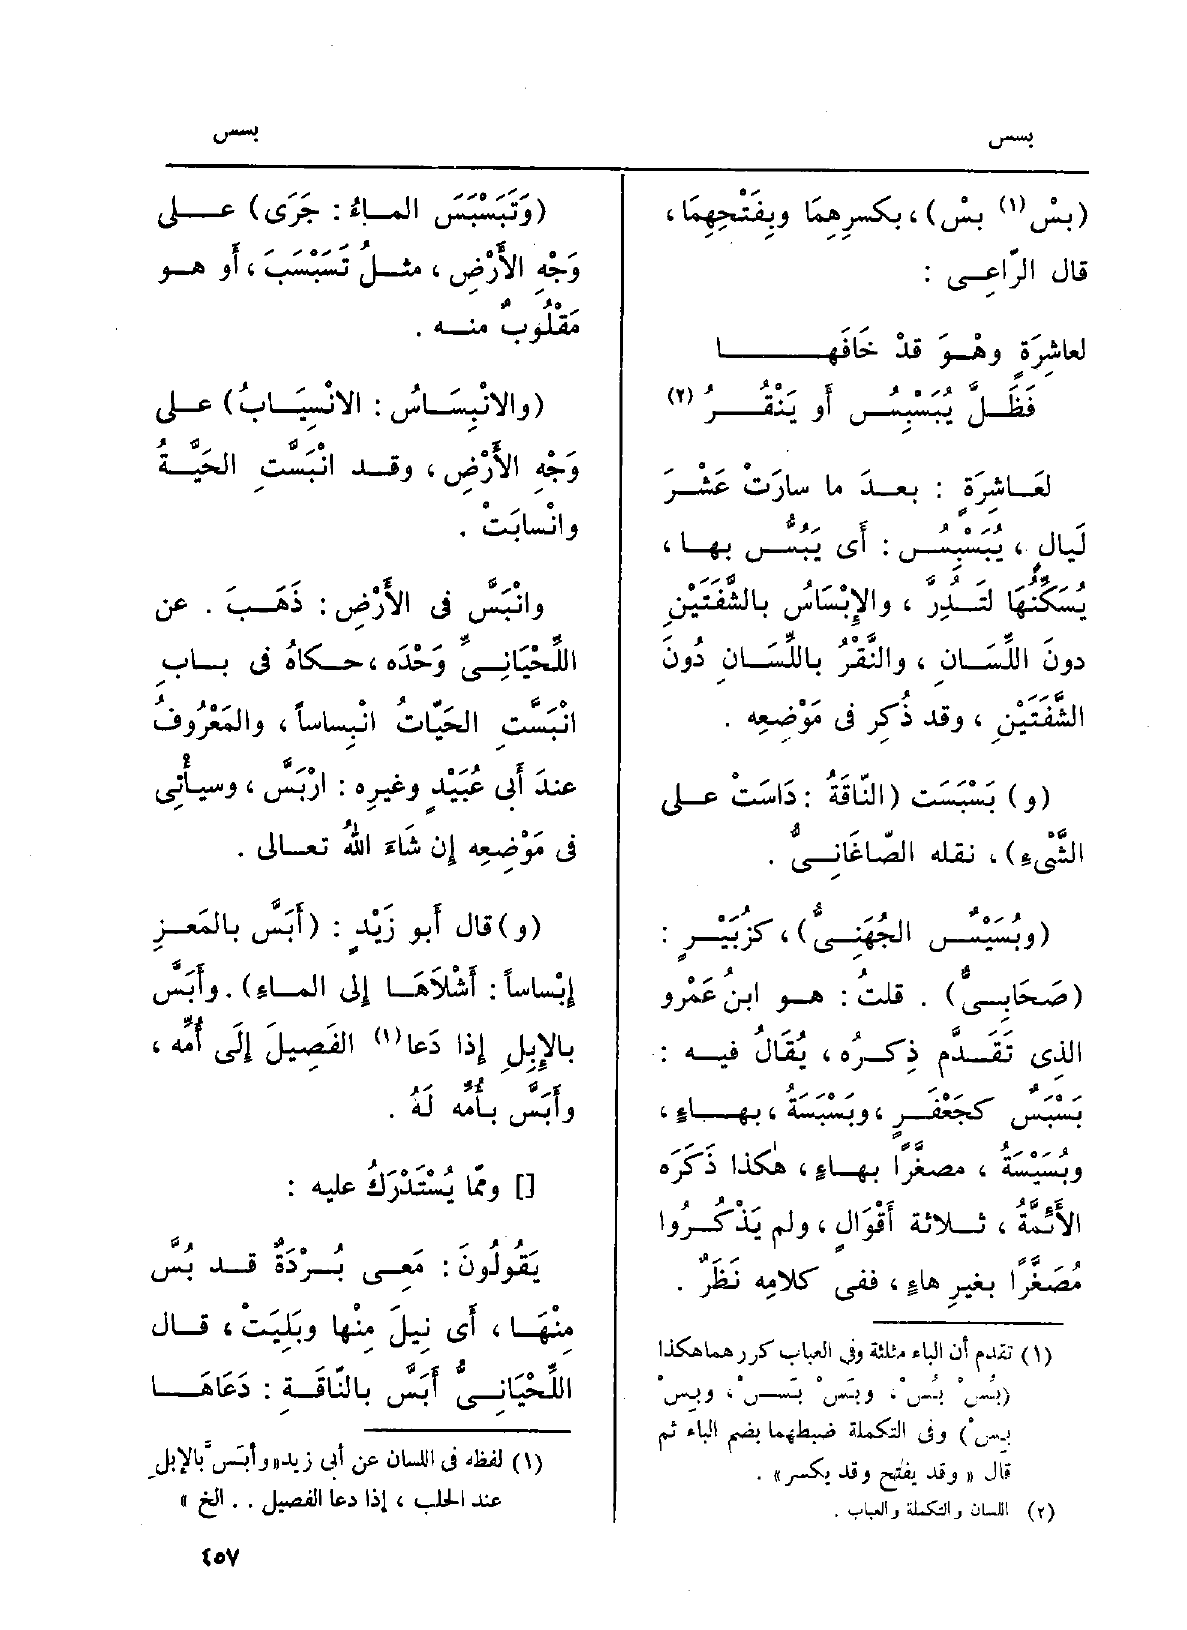 بسس
بسس
(بِسْ (١) بِسْ) ، بكسرِهِمَا وبِفَتْحِهِمَا ،
قال الرّاعِى :
لعاشِرَةٍ وهْوَ قدْ خَافَهَا
فَظَلَّ يُبَسْبِسُ أَو يَنْقُرُ (٢)
لعَاشِرَةٍ : بعدَ ما سارَتْ عَشْرَ
لَيالٍ ، يُبَسْبِسُ : أَى يَبُسُّ بها ،
يُسَكِّنُهَا لتَدُِرَّ ، والإِبْسَاسُ بالشَّفَتَيْنِ
دونَ اللِّسَانِ ، والنَّقْرُ باللِّسَانِ دُونَ
الشَّفَتَيْنِ ، وقد ذُكِر فى مَوْضِعِه .
(و) بَسْبَسَت (النَّاقَةُ : دَاسَتْ على
الشَّىْءِ) ، نقله الصّاغَانِىُّ .
(وبُسَيْسٌ الجُهَنِىُّ) ، كزُبَيْرٍ :
(صَحَابِىٌّ) . قلتُ : هو ابنُ عَمْرٍو
الذى تَقَدَّم ذِكرُه ، يُقَالُ فيه :
بَسْبَسٌ كجَعْفَرٍ ، وبَسْبَسَةُ ، بهاءٍ ،
وبُسَيْسَةُ ، مصغَّرًا بهاءٍ ، هكذا ذَكَرَه
الأَئِمَّةُ ، ثلاثة أَقْوَالٍ ، ولم يَذْكُرُوا
مُصَغَّرًا بغيرِ هاءٍ ، ففى كلامِه نَظَرٌ .
(١) تقدم أن الباء مثلثة وفى العباب كررهما هكذا
(بُسْ بُسْ ، وبَسْ بَسْ ، وبِسْ
بِسْ) وفى التكملة ضبطهما بضم الباء ثم
قال « وقد يفتح وقد يكسر » .
(٢) اللسان والتكملة والعباب .
(وتَبَسْبَسَ الماءُ : جَرَى) على
وَجْهِ الأَرْضِ ، مثلُ تَسَبْسَبَ ، أَو هو
مَقْلُوبٌ منه .
(والانْبِسَاسُ : الانْسِيَابُ) على
وَجْهِ الأَرْضِ ، وقد انْبَسَّتِ الحَيَّةُ
وانْسابَتْ .
وانْبَسَّ فى الأَرْضِ : ذَهَبَ . عن
اللِّحْيَانِىِّ وَحْدَه ، حكاهُ فى بابِ
انْبَسَّتِ الحَيّاتُ انْبِساساً ، والمَعْرُوفُ
عندَ أَبى عُبَيْدٍ وغيرِه : ارْبَسَّ ، وسيأْتى
فى مَوْضِعِه إِن شَاءَ اللهُ تعالى .
(و) قال أَبو زَيْدٍ : (أَبَسَّ بالمَعزِ
إِبْساساً : أَشْلَاهَا إِلى الماءِ) . وأَبَسَّ
بالإِبِلِ إِذا دَعَا (١) الفَصِيلَ إِلَى أُمِّه ،
وأَبَسَّ بأُمِّه لَهُ .
[] وممّا يُسْتَدْرَكُ عليه :
يَقُولُونَ : مَعِى بُرْدَةٌ قد بُسَّ
مِنْهَا ، أَى نِيلَ مِنْها وبَلِيَتْ ، قال
اللِّحْيَانِىُّ أَبَسَّ بالنّاقَةِ : دَعَاهَا
(١) لفظه فى اللسان عن أبى زيد « وأَبَسَّ بالإبل
عند الحلب ، إذا دعا الفصيل . . الخ »
٤٥٧